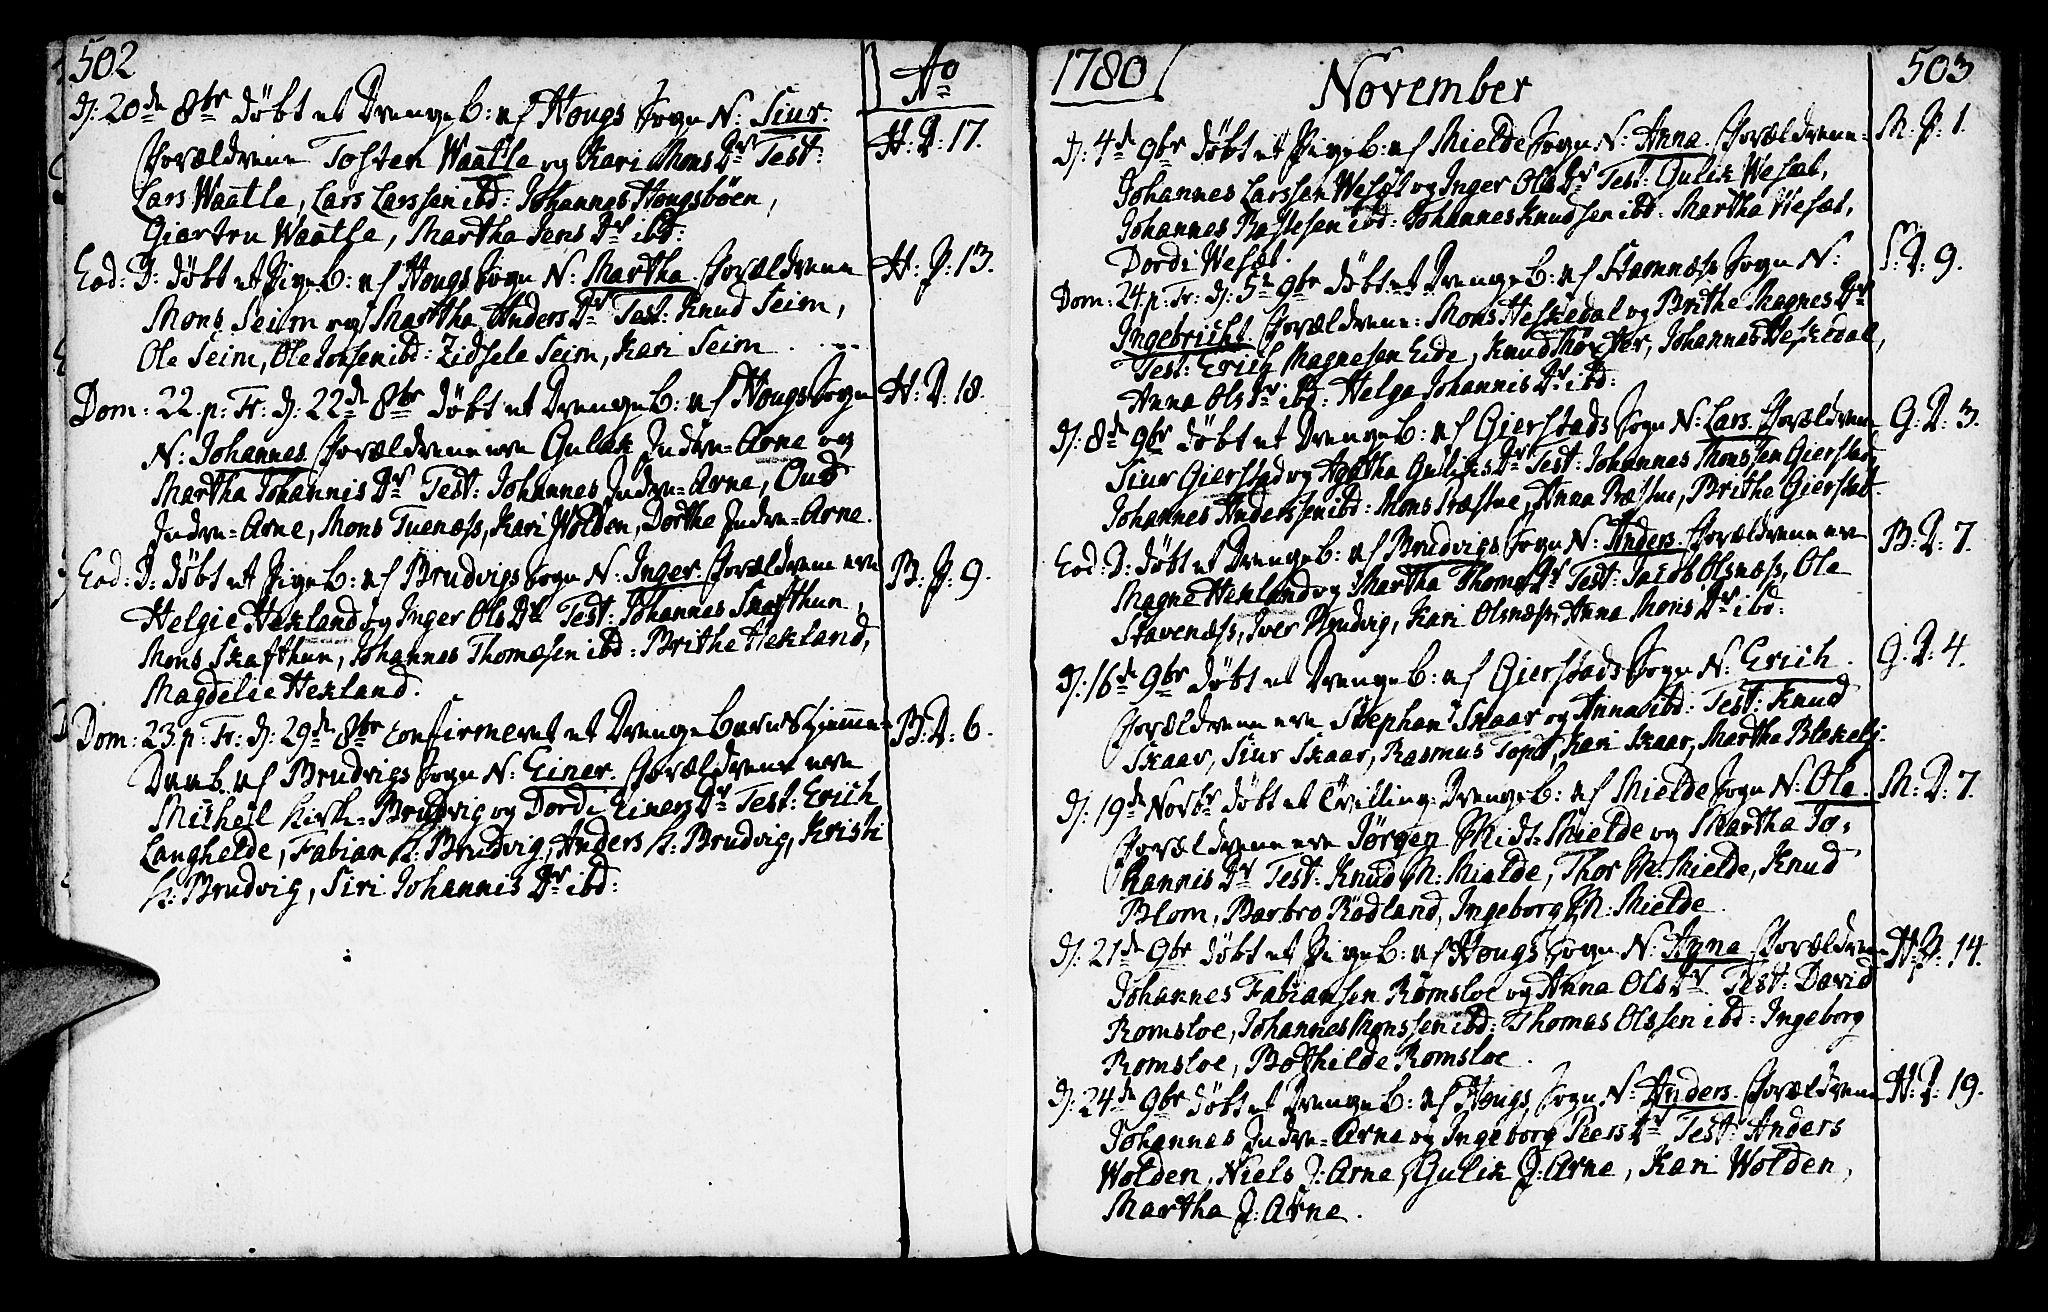 502
Ao
d: 20de 8br døbt et Drenge B: af Hougs Sogn N: Siur.
H: D: 17.
Forældrene Tosten Waatle og Kari Mons Dr Test:
Lars Waatle, Lars Larssen ibd: Johannes Hougsbøen,
Giertru Waatle, Martha Jens Dr ibd:
Eod: D: døbt et Pige B: af Hougs Sogn N: Martha. Forældrene
H: P: 13.
Mons Seim og Martha Anders Dr Test: Knud Seim,
Ole Seim, Ole Jonsen ibd: Zidsele Seim, Kari Seim
Dom: 22. p: Tr: d: 22de 8br døbt et Drenge B: af Hougs Sogn
H: D: 18.
N: Johannes. Forældrene ere Gulak Indre-Arne og
Martha Johannis Dr Test: Johannes Indre-Arne, Oud
Indre-Arne, Mons Tuenæss, Kari Wolden, Dorthe Indre-Arne.
Eod: D: døbt et Pige B: af Brudvigs Sogn N: Inger. Forældrene ere
B: P: 9.
Helgie Hekland og Inger Ols Dr Test: Johannes Skafthun,
Mons Skafthun, Johannes Thomæsen ibd: Brithe Hekland,
Magdelie Hekland.
Dom: 23. p: Tr: d: 29de 8br confirmeret et Drenge Barns Hjemme-
B: D: 6.
Daab af Brudvigs Sogn N: Einer. Forældrene ere
Michel Kirke-Brudvig og Dordi Einers Dr Test: Erich
Langhelde, Fabian K: Brudvig, Anders K: Brudvig, Kristi
K: Brudvig, Siri Johannis Dr ibd:
1780
November
503
d: 4de 9br døbt et Pige B: af Mielde Sogn N: Anna. Forældrene:
M: P: 1.
Johannes Larssen Wesæt og Inger Ols Dr Test: Gulik Wesæt,
Johannes ibd: Johannes Knudsen ibd: Martha Wesæt,
Dordi Wesæt.
Dom: 24. p: Tr: d: 5te 9br døbt et Drenge B: af Stamnæss Sogn N:
S: D: 9.
Ingebricht. Forældrene: Mons Heskedal og Brithe Magnes Dr
Test: Erich Magnesen Eide, Knud , Johannes Heskedal,
Anna Ols Dr ibd: Helga Johannis Dr ibd:
d: 8de 9br døbt et Drenge B: af Gierstads Sogn N: Lars. Forældrene
G: D: 3.
Siur Gierstad og Agatha Guliks Dr Test: Johannes Monssen Gierstad,
Johannes Anderssen ibd: Mons Træfne, Anna , Brithe Gierstad.
Eod: D: døbt et Drenge B: af Brudvigs Sogn N: Anders. Forældrene ere
B: D: 7.
Magne Hekland og Martha Thomæ Dr Test: Jacob Olsnæss, Ole
Stavenæss, Iver Brudvig, Kari Olsnæss, Anna Mons Dr ibd:
d: 16de 9br døbt et Drenge B: af Gierstads Sogn N: Erich.
G: D: 4.
Forældrene ere Stephan Skaar og Anna ibd: Test: Knud
Skaar, Siur Skaar, Rasmus , Kari Skaar, Martha Blekelj.
d: 19de Novbr døbt et Tvilling-Drenge B: af Mielde Sogn N: Ole.
M: D: 7.
Forældrene ere Jørgen Midt-Mielde og Martha Jo-
hannis Dr Test: Knud M: Mielde, Thor M: Mielde, Knud
Blom, Barbro Rødland, Ingeborg M: Mielde
d: 21de 9br døbt et Pige B: af Hougs Sogn N: Anna. Forældrene
H: P: 14.
Johannes Fabiansen Romsloe og Anna Ols Dr Test: David
Romsloe, Johannes Monssen ibd: Thomas Olssen ibd: Ingeborg
Romsloe, Bothilde Romsloe.
d: 24de 9br døbt et Drenge B: af Hougs Sogn N: Anders. Forældrene
H: D: 19.
Johannes Indre-Arne og Ingeborg Peers Dr Test: Anders
Wolden, Niels J: Arne, Gulik J: Arne, Kari Wolden,
Martha J: Arne.